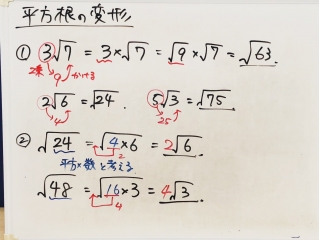 平方根の変形
① 3√7 = 3×√7 = √9 × √7 = √63.
2乗 9 かける
2√6 = √24. 5√3 = √75.
4 25
② √24 = √4×6 = 2√6.
2
平方×数 と考える
√48 = √16×3 = 4√3.
4